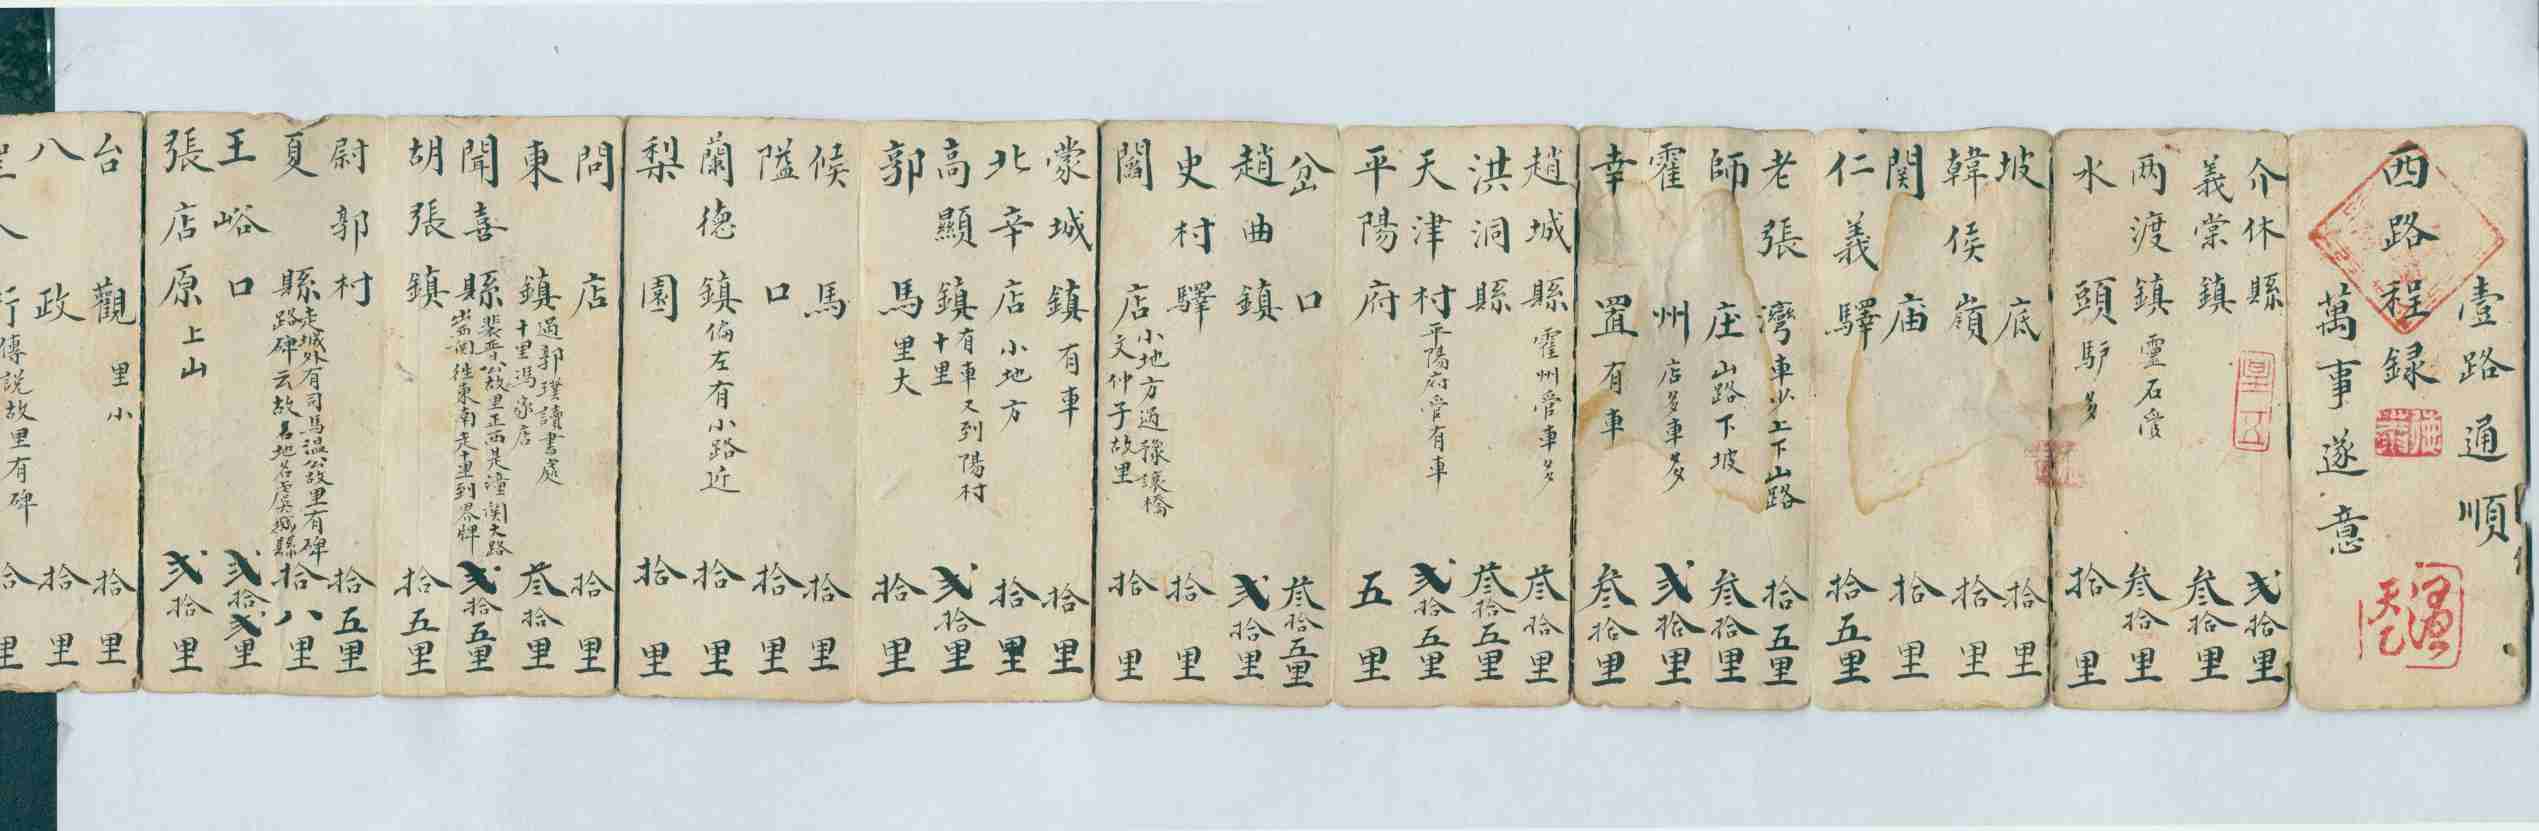 壹路通順
西路程録
萬事遂意
介休縣 弍拾里
義棠鎮 叁拾里
両渡鎮 靈石管 叁拾里
水頭 馿多 拾里
坡底 拾里
韓侯嶺 拾里
関庙 拾里
仁義驛 拾五里
老張灣 車少上下山路 拾五里
師庄 山路下坡 叁拾里
霍州 店多車多 弍拾里
幸置 有車 叁拾里
趙城縣 霍州管車多 叁拾里
洪洞縣 叁拾五里
天津村 平陽府管有車 弍拾五里
平陽府 五里
岔口 叁拾五里
趙曲鎮 弍拾里
史村驛 拾里
閻店 小地方過豫讓橋文仲子故里 拾里
蒙城鎮 有車 拾里
北辛店 小地方 拾里
高顯鎮 有車又到陽村十里 弍拾里
郭馬 里大 拾里
候馬 拾里
隘口 拾里
蘭德鎮 偏左有小路近 拾里
梨園 拾里
問店 拾里
東鎮 過郭璞讀書處十里馮家店 叁拾里
聞喜縣 裴晋公故里正西是潼関大路出西関往東南走十里到界牌 弍拾五里
胡張鎮 拾五里
尉郭村 拾五里
夏縣 走城外有司馬温公故里有碑路碑云故名地名虞縣 拾八里
王峪口 弍拾弍里
張店原 上山 弍拾里
台觀 里小 拾里
八政 拾里
聖人 行傳説故里有碑 拾里